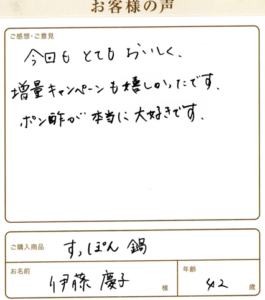 お客様の声
ご感想・ご意見
今回も とても おいしく、
増量キャンペーンも嬉しかったです。
ポン酢が 本当に 大好きです。
ご購入商品
すっぽん 鍋
お名前
伊藤 慶子 様
年齢
42 歳